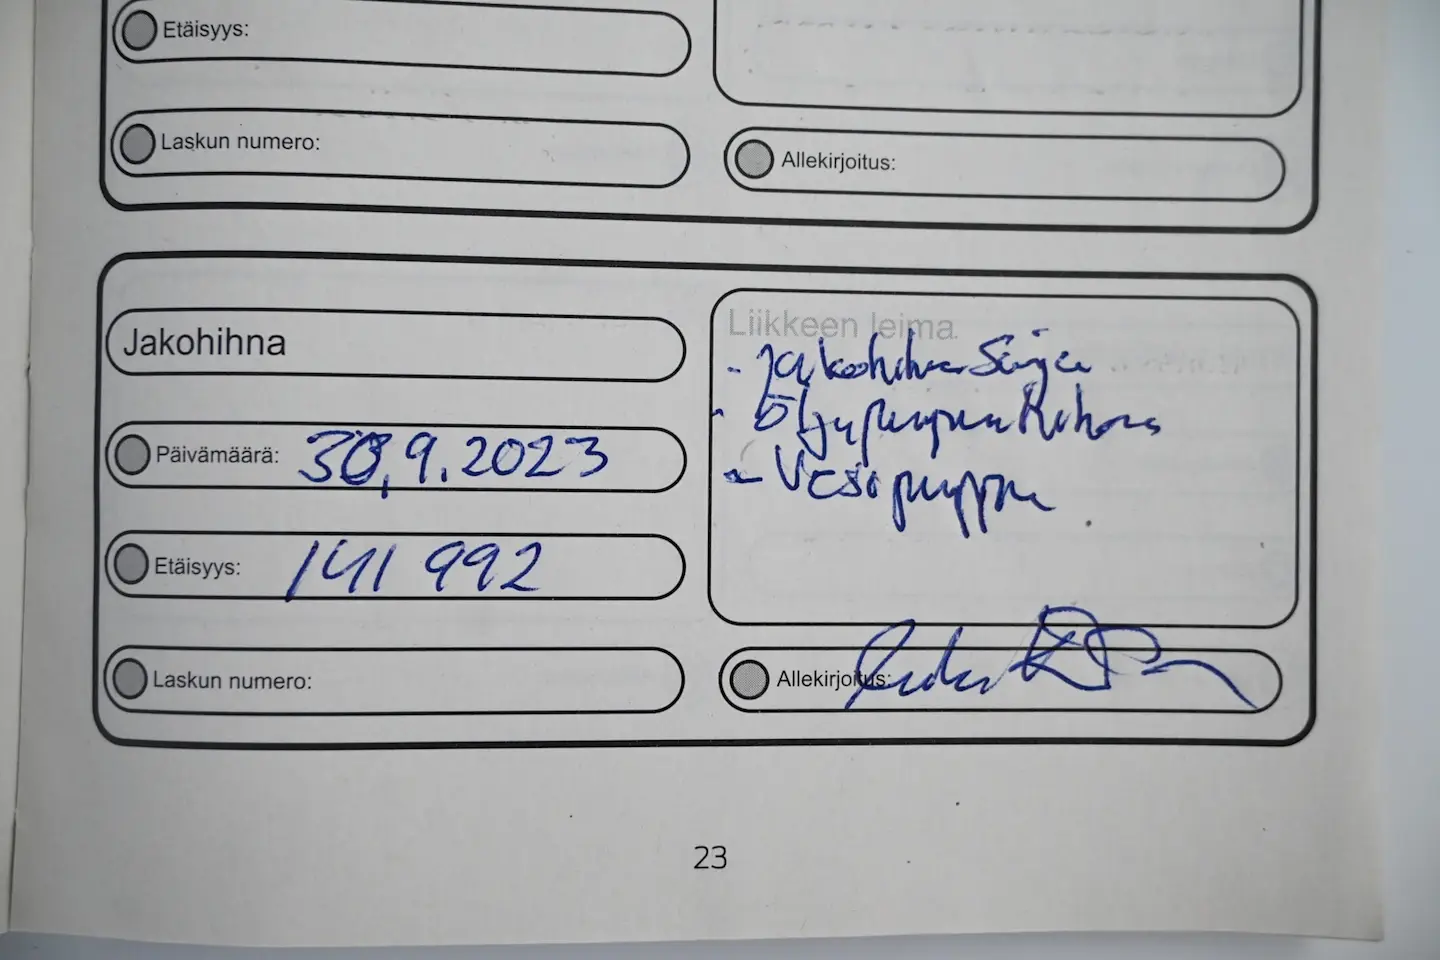 Etäisyys:
Laskun numero:
Allekirjoitus:
Jakohihna
Päivämäärä: 30.9.2023
Etäisyys: 141 992
Laskun numero:
Liikkeen leima
- Jakohihna Sarja
- Öljypumpun hihna
- Vesipumppu
Allekirjoitus:
23